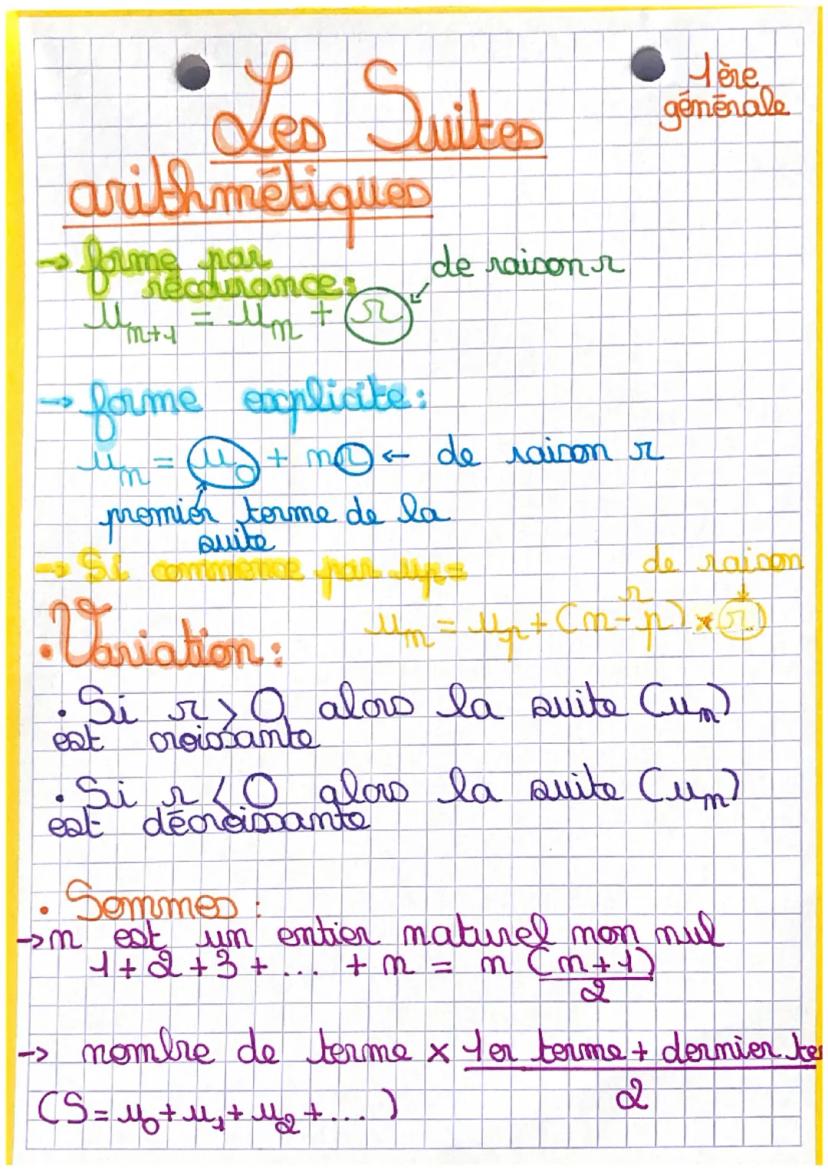 Les Suites
1ère
générale
arithmétiques
→ forme par
récurrence:
de raison r
u_{n+1} = u_n + r
→ forme explicite:
u_n = u_0 + nr ← de raison r
premier terme de la
suite
→ Si commence par u_p =
de raison
r
u_n = u_p + (n-p) × r
• Variation:
• Si r > 0 alors la suite (u_n)
est croissante
• Si r < 0 alors la suite (u_n)
est décroissante
• Sommes :
→ n est un entier naturel non nul
1+2+3+... + n = n (n+1)
2
→ nombre de terme × 1er terme + dernier te
2
(S = u_0 + u_1 + u_2 + ...)